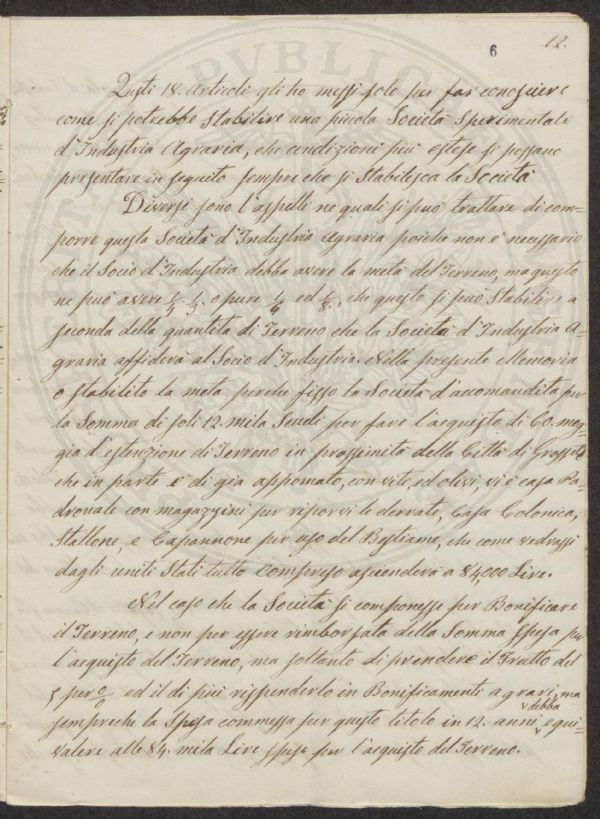 6 12.
Questi 18. Articoli gli ho messi solo per far conoscere
come si potrebbe Stabilire una picola Società Sperimentale
d'Industria Agraria, che condizioni più estese si possano
presentare in seguito sempre che si Stabilisca la Società
Diversi sono l'aspetti ne quali si può trattare di com=
porre questa Società d'Industria Agraria poiche non è necessario
che il Socio d'Industria debba avere la metà del Terreno, ma questo
ne può avere 1/4. 1/3. o pure 1/4 ed 1/8., che questo si può Stabilire a
seconda della quantità di Terreno che la Società d'Industria A=
graria affiderà al Socio d'Industria. Nella presente Memoria
o stabilito la metà perche fisso la Società d'accomandita per
la Somma di soli 12. mila Scudi per fare l'acquisto di 60. mog=
gia d'estenzione di Terreno in prossimità della Città di Grosseto
che in parte è di già appomato, con viti, ed olivi, vi è casa Pa=
dronale con magazzini per riporvi le derrate, Casa Colonica,
Stallone, e Capannone per uso del Bestiame, che come vedrassi
dagli uniti Stati tutto compreso ascenderà a 84,000 Lire.
Nel caso che la Società si componesse per Bonificare
il Terreno, e non per essere rimborsata della Somma Spesa per
l'acquisto del Terreno, ma soltanto di prendere il Frutto del
5 per 0/0 ed il di più rispenderlo in Bonificamenti agrari, ma
sempreche la Spesa commessa per questo titolo in 12. anni debba equi=
valere alle 84. mila Lire spese per l'acquisto del Terreno.